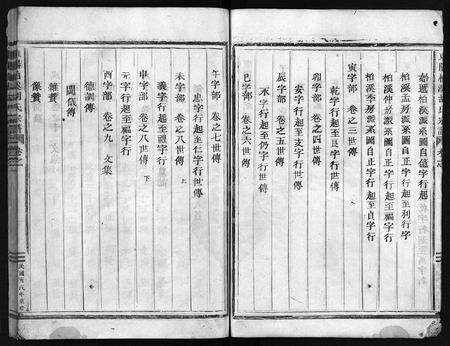 始遷柏溪派系圖自億字行起
柏溪孟房派系圖自正字行起至列行字
柏溪仲房派系圖自正字行起至福字行
柏溪季房派系圖自正字行起至貞字行
寅字部 卷之三世傳
乾字行起至良字行世傳
卯字部 卷之四世傳
安字行起至支字行世傳
辰字部 卷之五世傳
承字行起至仍字行世傳
巳字部 卷之六世傳
午字部 卷之七世傳
忠字行起至仁字行世傳
未字部 卷之八世傳 上
義字行起至禮字行
申字部 卷之八世傳 下
元字行起至福字行
酉字部 卷之九 文集
德訓傳
閫儀傳
雜贊
像贊